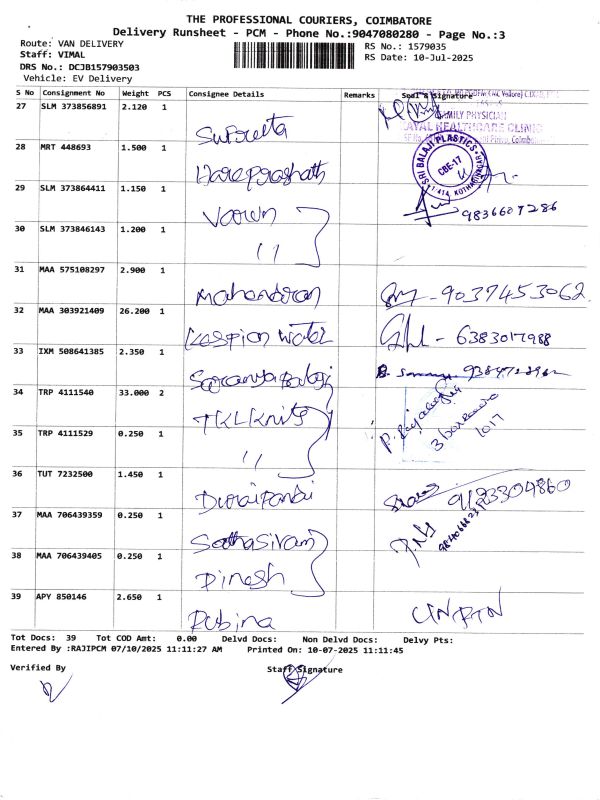 THE PROFESSIONAL COURIERS, COIMBATORE
Delivery Runsheet - PCM - Phone No.:9047080280 - Page No.:3
Route: VAN DELIVERY
RS No.: 1579035
Staff: VIMAL
RS Date: 10-Jul-2025
DRS No.: DCJB157903503
Vehicle: EV Delivery
S No Consignment No Weight PCS Consignee Details Remarks Seal & Signature
27 SLM 373856891 2.120 1
FAMILY PHYSICIAN
28 MRT 448693 1.500 1 Hareprashath
SRI BALAJI PLASTICS
CBE-17
29 SLM 373864411 1.150 1 Varun
9836607286
30 SLM 373846143 1.200 1 ''
31 MAA 575108297 2.900 1 Mahendiran 9037453062
32 MAA 303921409 26.200 1 Kaspion Water 6383017988
33 IXM 508641385 2.350 1 Saranyabalaji
34 TRP 4111540 33.000 2 TKL Knits
35 TRP 4111529 0.250 1 ''
36 TUT 7232500 1.450 1 Duraipandi
37 MAA 706439359 0.250 1 Sathasivam
38 MAA 706439405 0.250 1 Dinesh
39 APY 850146 2.650 1 Rubina
Tot Docs: 39 Tot COD Amt: 0.00 Delvd Docs: Non Delvd Docs: Delvy Pts:
Entered By :RAJIPCM 07/10/2025 11:11:27 AM Printed On: 10-07-2025 11:11:45
Verified By
Staff Signature